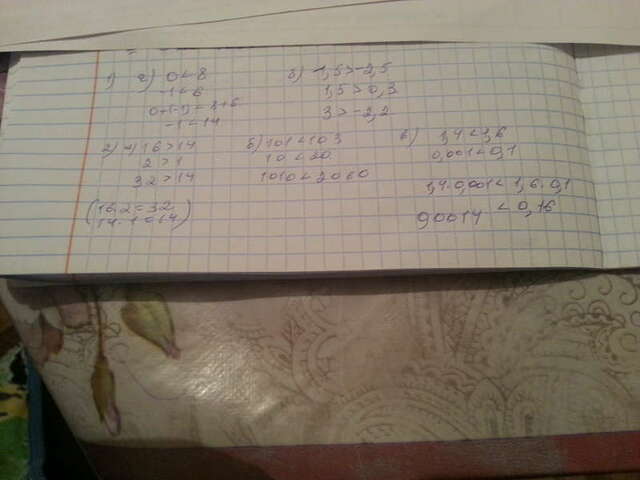 1) а) 0 < 8
-1 < 6
0+(-1) < 8+6
-1 < 14
б) -1,5 > -2,5
1,5 > 0,3
3 > -2,2
2) а) 16 > 14
2 > 1
32 > 14
(16·2 = 32
14·1 = 14)
б) 101 < 103
10 < 20
1010 < 2060
в) 1,4 < 1,6
0,001 < 0,1
1,4·0,001 < 1,6·0,1
0,0014 < 0,16